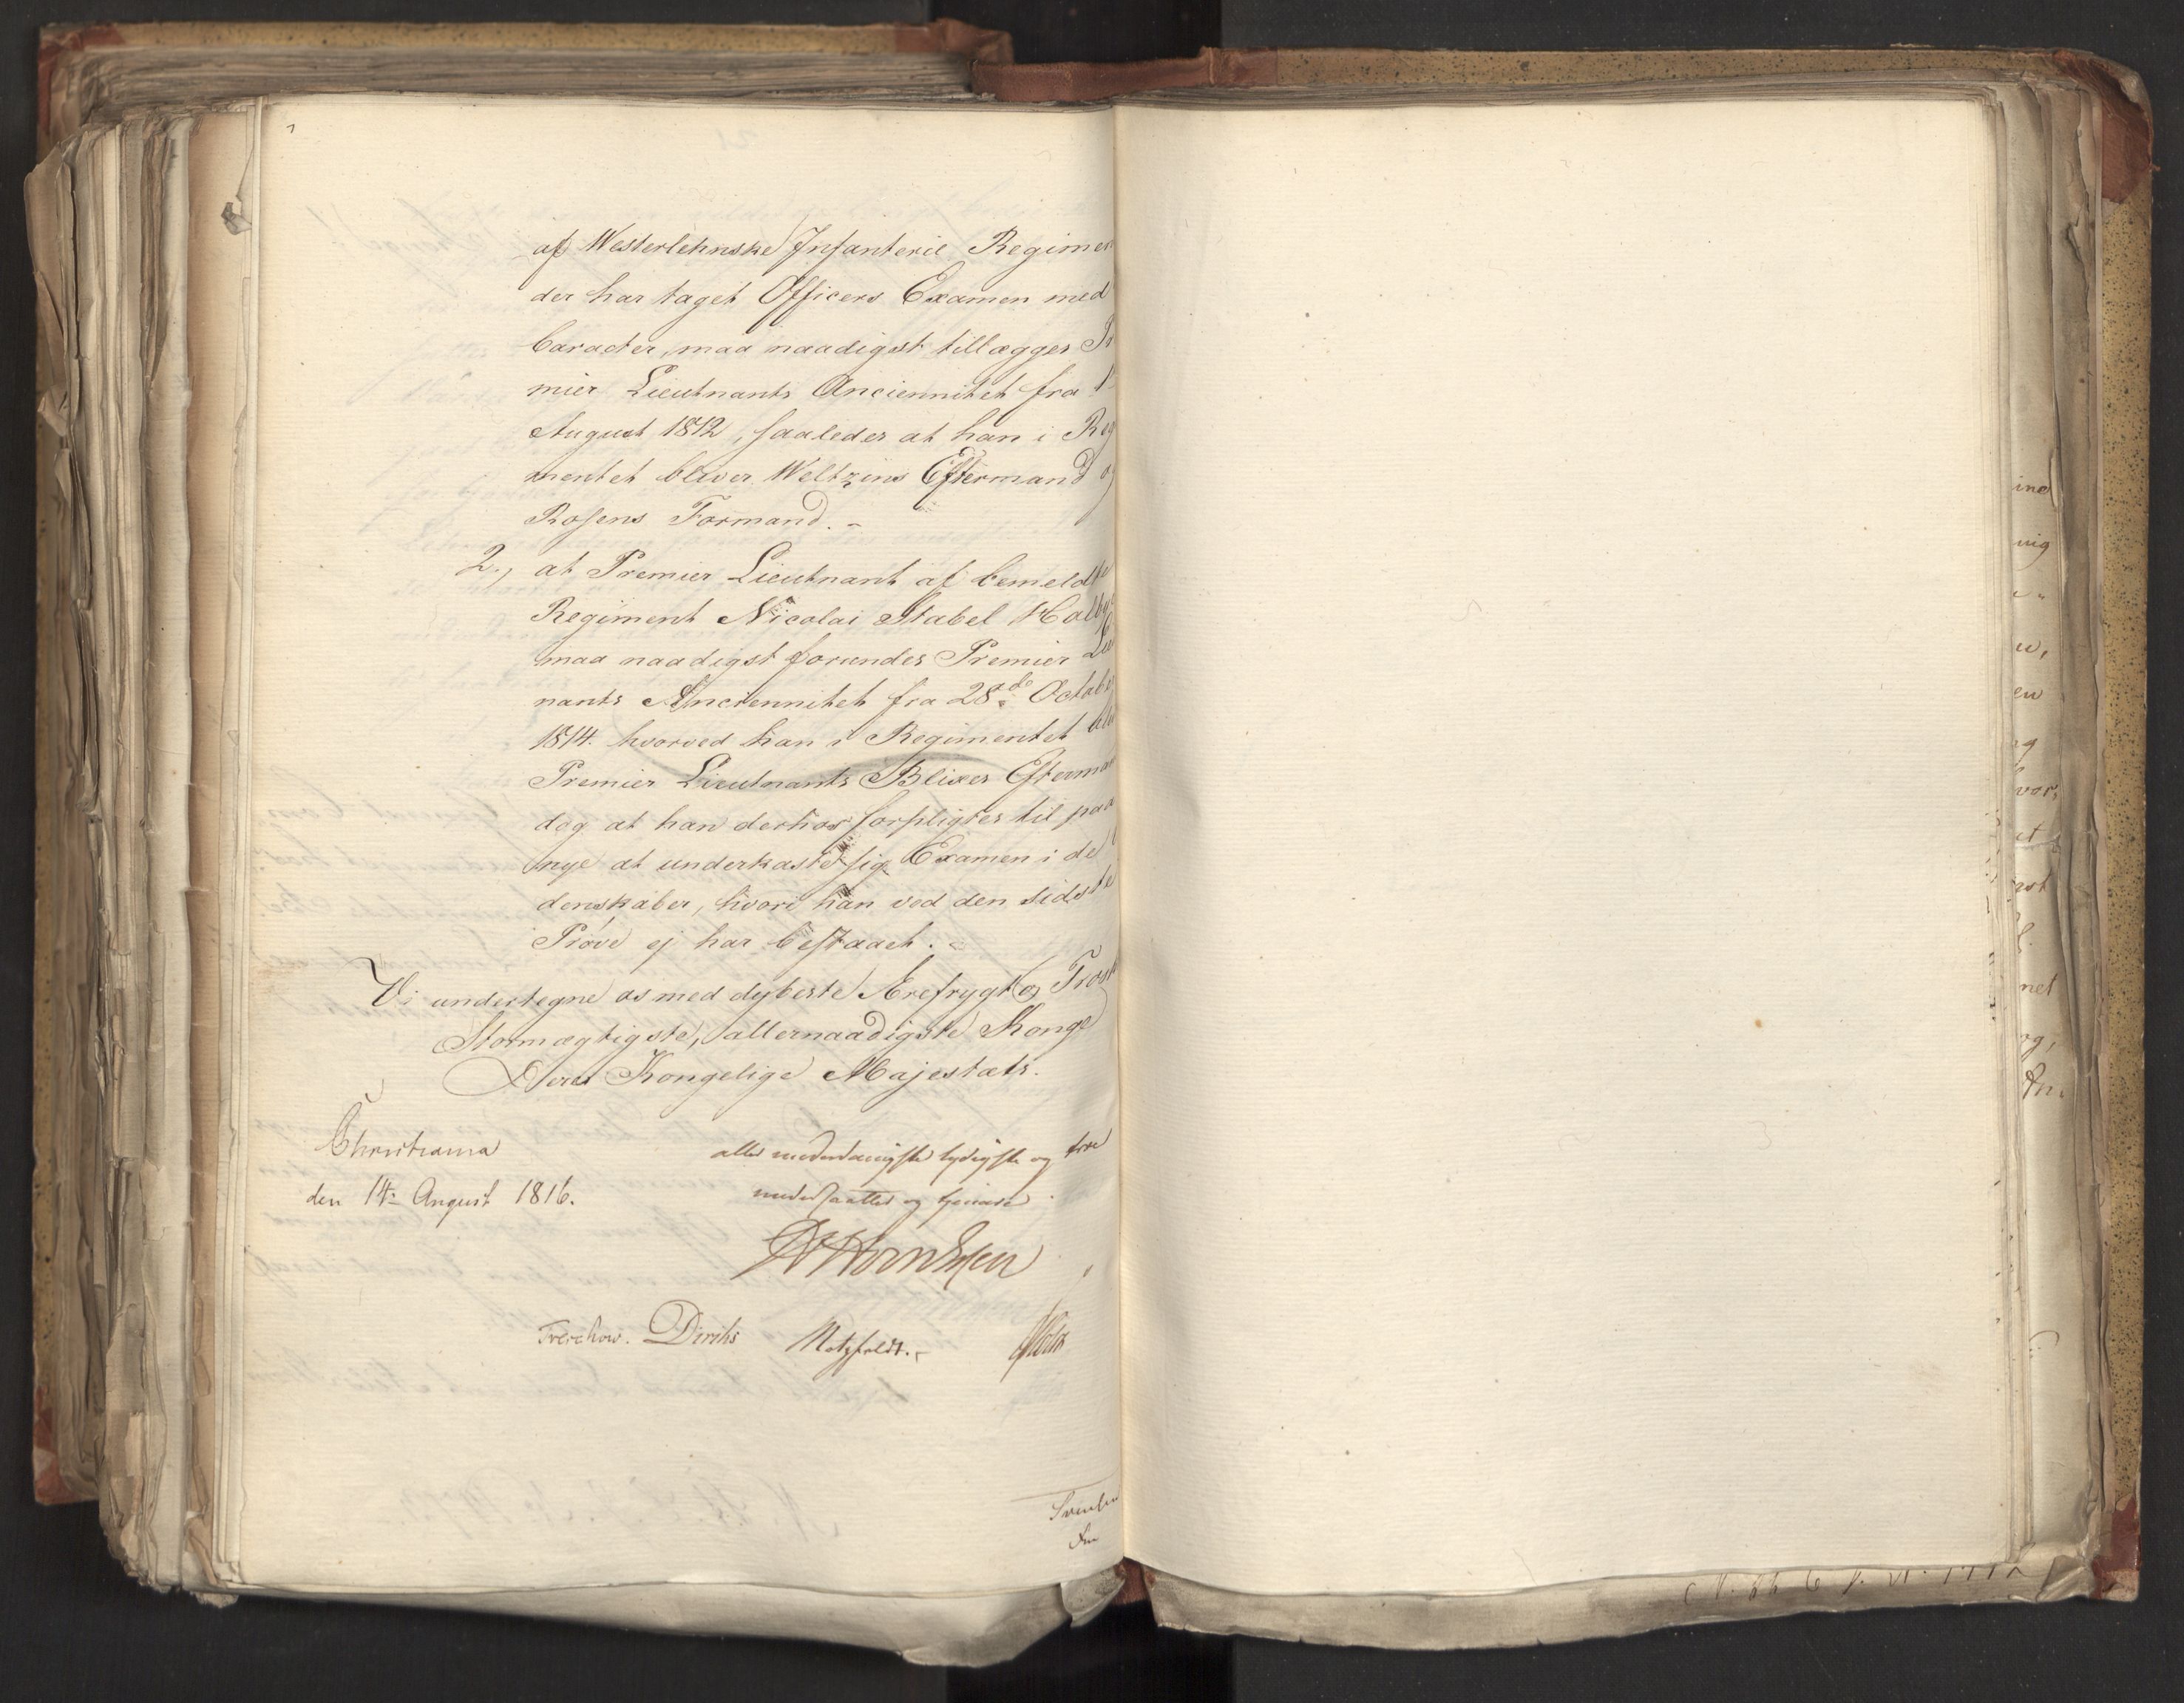 af Westerlehnske Infanterie Regimen
der har taget Officers Examen med
Caracter, maa naadigst tillægges Pr
mier Lieutnants Anciennitet fra 1
August 1812, saaledes at han i Reg
mentet bliver Weltzins Eftermand og
Rosens Formand.
2., at Premier Lieutnant af bemeldte
Regiment Nicolai Stabel
maa naadigst forundes Premier Lieu
nants Anciennitet fra 28de October
1814. hvorved han i Regimentet bliv
Premier Lieutnants Blixes Efterma
dog at han derhos forpligtes til paa
nye at underkaste sig Examen i de
denskaber, hvori han ved den sidste
Prøve ej har bestaaet.
Vi undertegne os med dybeste Ærefrygt og Trosk
Stormægtigste, allernaadigste Konge
Deres Kongelige Majestæts.
Christiania
den 14de August 1816.
allerunderdanigste lydigste og troe
undersaatter og tjenere
Treschow. Diriks Motzfeldt.
ind
nig
u,
en
og
vor,
et
net
og,